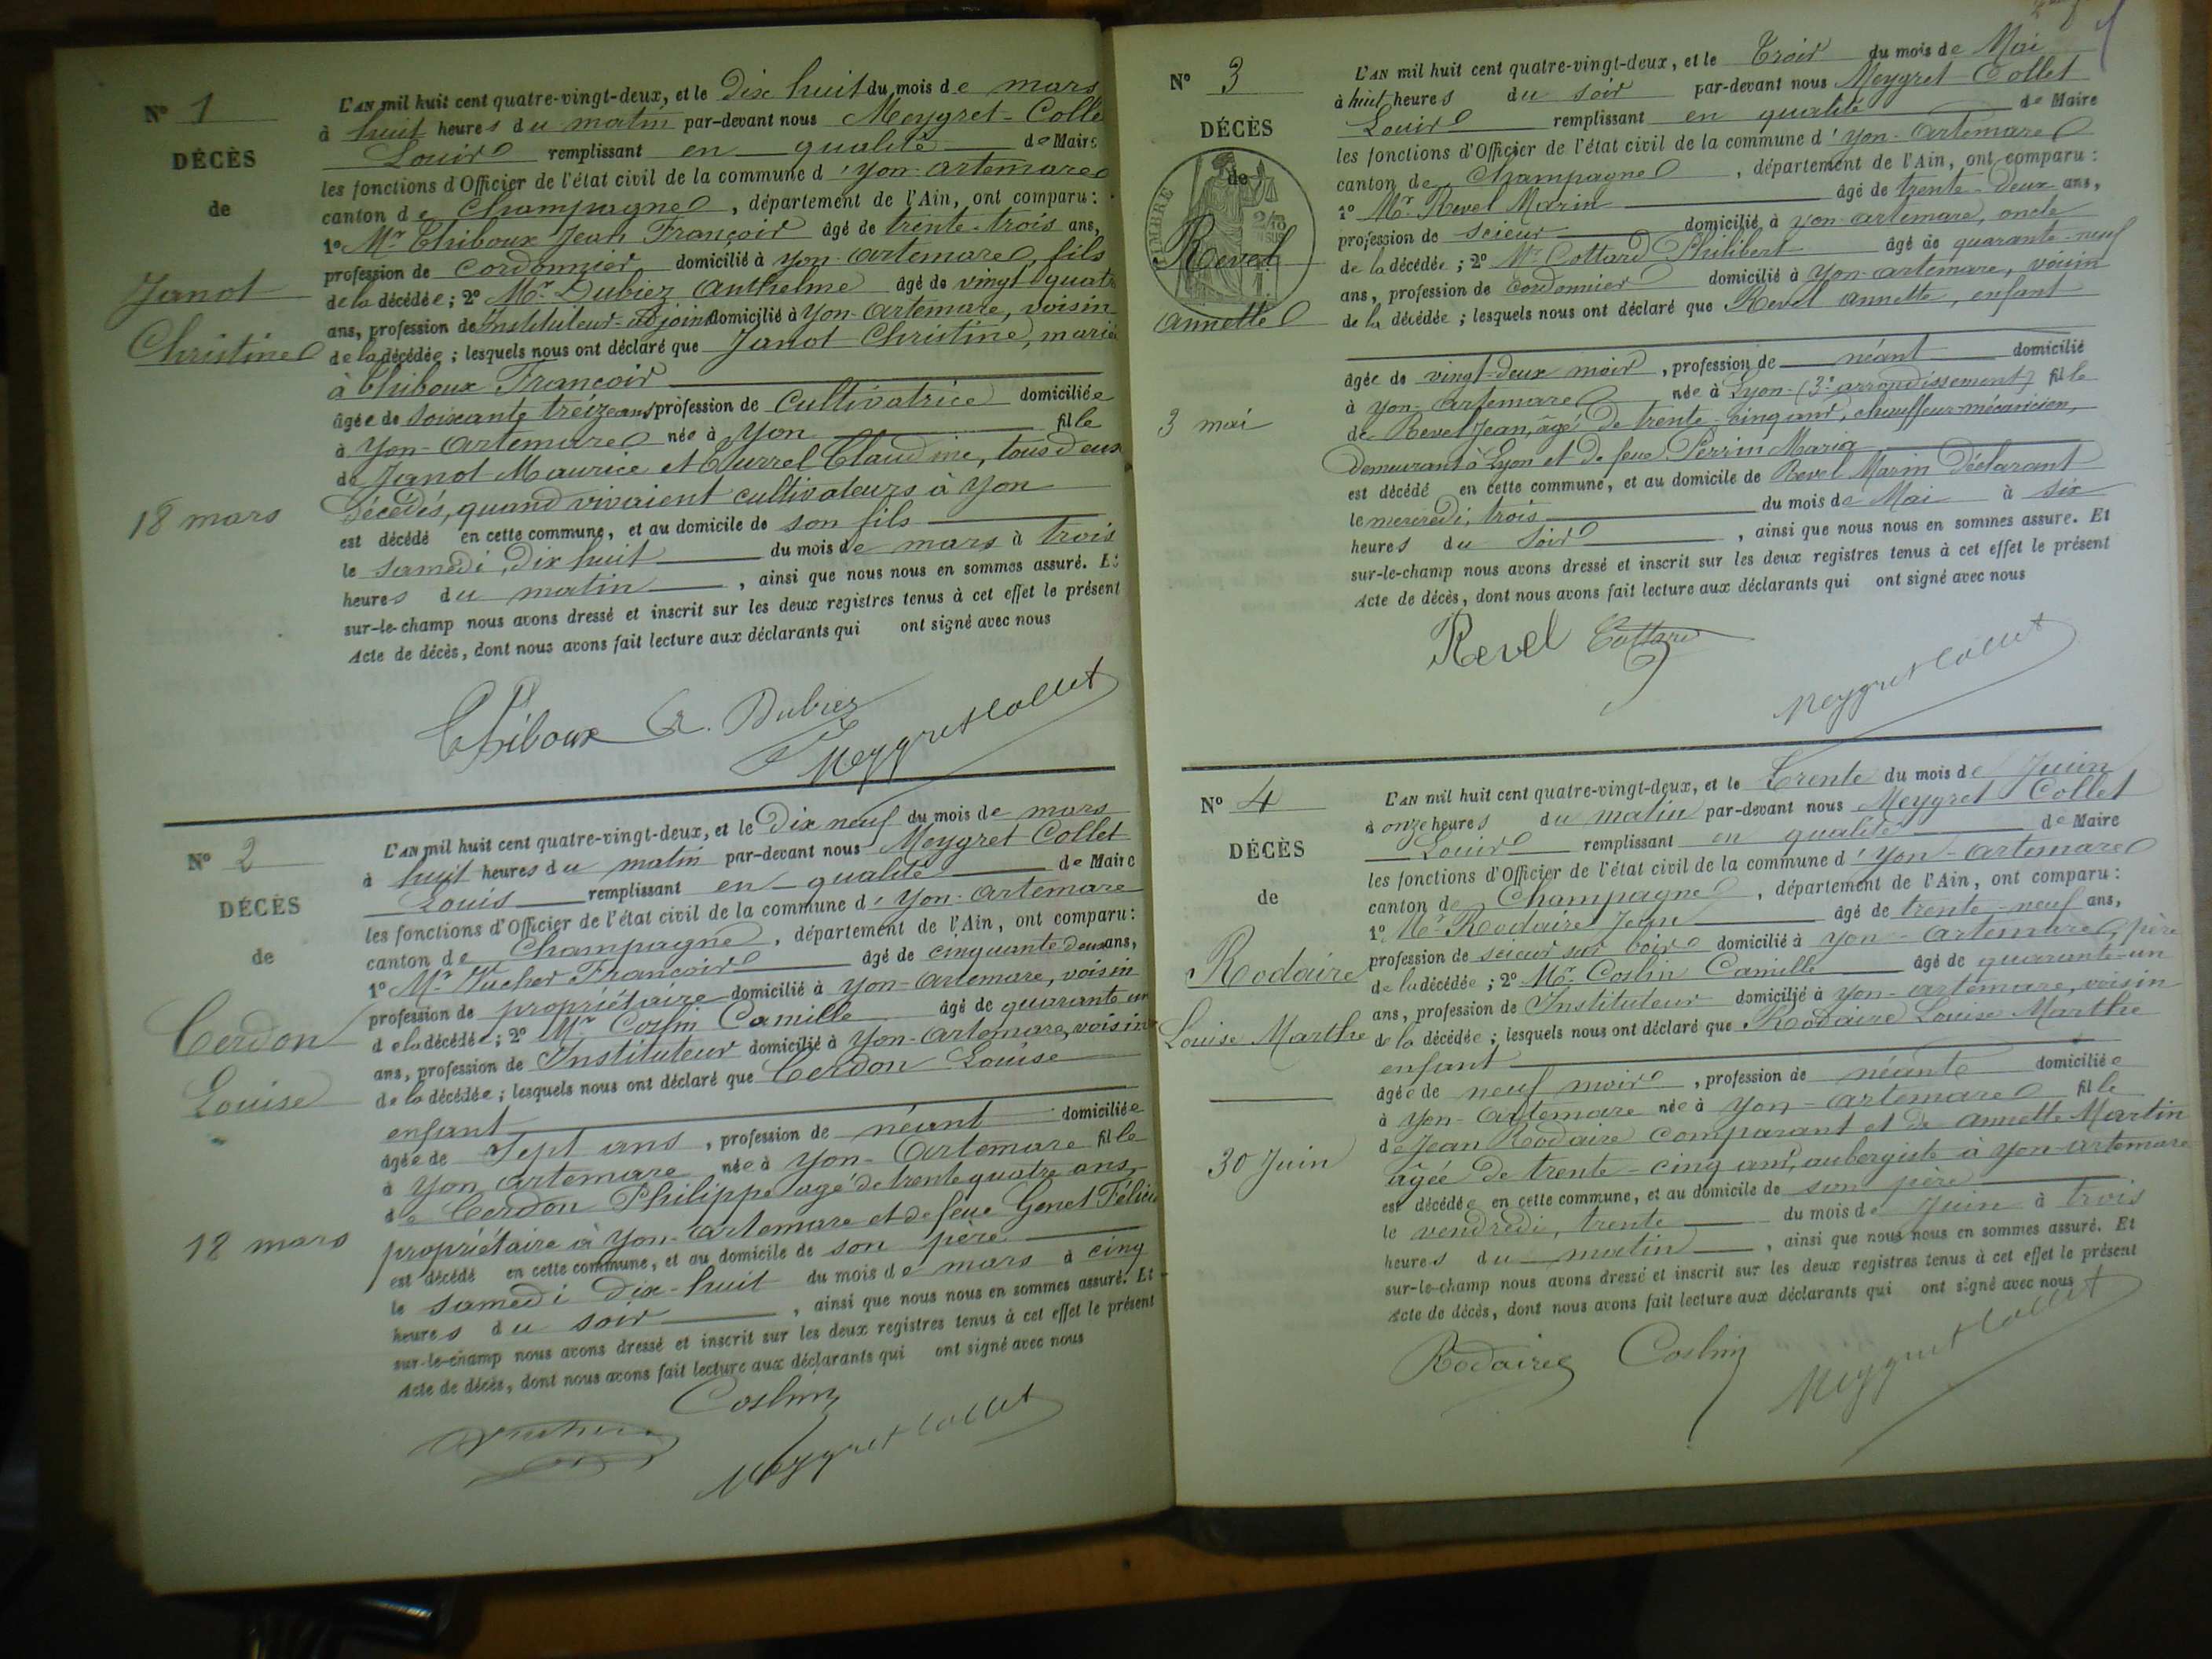 N° 1
DÉCÈS
de
Janot
Christine
18 mars
L'AN mil huit cent quatre-vingt-deux, et le Dix huit du mois de mars
à huit heures du matin par-devant nous Meygret-Colle
Louis remplissant en qualité de Maire
les fonctions d'Officier de l'état civil de la commune d'Yon-Artemare
canton de Champagne, département de l'Ain, ont comparu :
1° Mr Thiboux Jean François âgé de trente-trois ans,
profession de cordonnier domicilié à Yon-Artemare, fils
de la décédée ; 2° Mr Dubiez Anthelme âgé de vingt quatre
ans, profession de Instituteur-adjoint domicilié à Yon-Artemare, voisin
de la décédée ; lesquels nous ont déclaré que Janot Christine, mariée
à Thiboux François
âgée de soixante treize ans, profession de Cultivatrice domiciliée
à Yon-Artemare née à Yon fille
de Janot Maurice et Claudine, tous deux
décédés, quand vivaient cultivateurs à Yon
est décédé en cette commune, et au domicile de son fils
le samedi, dix huit du mois de mars à trois
heures du matin, ainsi que nous nous en sommes assuré. Et
sur-le-champ nous avons dressé et inscrit sur les deux registres tenus à cet effet le présent
Acte de décès, dont nous avons fait lecture aux déclarants qui ont signé avec nous
Thiboux A. Dubiez
Meygret Collet
N° 2
DÉCÈS
de
Cerdon
Louise
18 mars
L'AN mil huit cent quatre-vingt-deux, et le Dix neuf du mois de mars
à huit heures du matin par-devant nous Meygret Collet
Louis remplissant en qualité de Maire
les fonctions d'Officier de l'état civil de la commune d'Yon-Artemare
canton de Champagne, département de l'Ain, ont comparu :
1° Mr Vucher François âgé de cinquante-deux ans,
profession de propriétaire domicilié à Yon-Artemare, voisin
de la décédée ; 2° Mr Coslin Camille âgé de quarante un
ans, profession de Instituteur domicilié à Yon-Artemare, voisin
de la décédée ; lesquels nous ont déclaré que Cerdon Louise
enfant
âgée de Sept ans, profession de néant domiciliée
à Yon Artemare née à Yon-Artemare fille
de Cerdon Philippe agé de trente quatre ans,
propriétaire à Yon-Artemare et de feue Genet
est décédé en cette commune, et au domicile de son père
le samedi dix-huit du mois de mars à cinq
heures du soir, ainsi que nous nous en sommes assuré. Et
sur-le-champ nous avons dressé et inscrit sur les deux registres tenus à cet effet le présent
Acte de décès, dont nous avons fait lecture aux déclarants qui ont signé avec nous
Coslin
Vucher
Meygret Collet
N° 3
DÉCÈS
de
TIMBRE
Revel
Annette
3 mai
L'AN mil huit cent quatre-vingt-deux, et le Trois du mois de Mai
à huit heures du soir par-devant nous Meygret-Collet
Louis remplissant en qualité de Maire
les fonctions d'Officier de l'état civil de la commune d'Yon-Artemare
canton de Champagne, département de l'Ain, ont comparu :
1° Mr Revel Marin âgé de trente-deux ans,
profession de scieur domicilié à Yon-Artemare, oncle
de la décédée ; 2° Mr Cottard Philibert âgé de quarante-neuf
ans, profession de cordonnier domicilié à Yon-Artemare, voisin
de la décédée ; lesquels nous ont déclaré que Revel Annette, enfant
âgée de vingt-deux mois, profession de néant domicilié
à Yon-Artemare née à Lyon (3e arrondissement) fille
de Revel Jean, âgé de trente-cinq ans, chauffeur-mécanicien,
demeurant à Lyon et de feue Perrin Maria
est décédé en cette commune, et au domicile de Revel Marin déclarant
le mercredi, trois du mois de Mai à six
heures du soir, ainsi que nous nous en sommes assure. Et
sur-le-champ nous avons dressé et inscrit sur les deux registres tenus à cet effet le présent
Acte de décès, dont nous avons fait lecture aux déclarants qui ont signé avec nous
Revel Cottard
Meygret Collet
N° 4
DÉCÈS
de
Rodaire
Louise Marthe
30 Juin
L'AN mil huit cent quatre-vingt-deux, et le Trente du mois de Juin
à onze heures du matin par-devant nous Meygret Collet
Louis remplissant en qualité de Maire
les fonctions d'Officier de l'état civil de la commune d'Yon-Artemare
canton de Champagne, département de l'Ain, ont comparu :
1° Mr Rodaire Jean âgé de trente-neuf ans,
profession de scieur sur bois domicilié à Yon-Artemare, père
de la décédée ; 2° Mr Coslin Camille âgé de quarante-un
ans, profession de Instituteur domicilié à Yon-Artemare, voisin
de la décédée ; lesquels nous ont déclaré que Rodaire Louise Marthe
enfant
âgée de neuf mois, profession de néante domiciliée
à Yon-Artemare née à Yon-Artemare fille
de Jean Rodaire comparant et de Annette Martin
âgée de trente-cinq ans, aubergiste à Yon-Artemare
est décédée en cette commune, et au domicile de son père
le vendredi, trente du mois de Juin à trois
heures du matin, ainsi que nous nous en sommes assuré. Et
sur-le-champ nous avons dressé et inscrit sur les deux registres tenus à cet effet le présent
Acte de décès, dont nous avons fait lecture aux déclarants qui ont signé avec nous
Rodaire Coslin
Meygret Collet